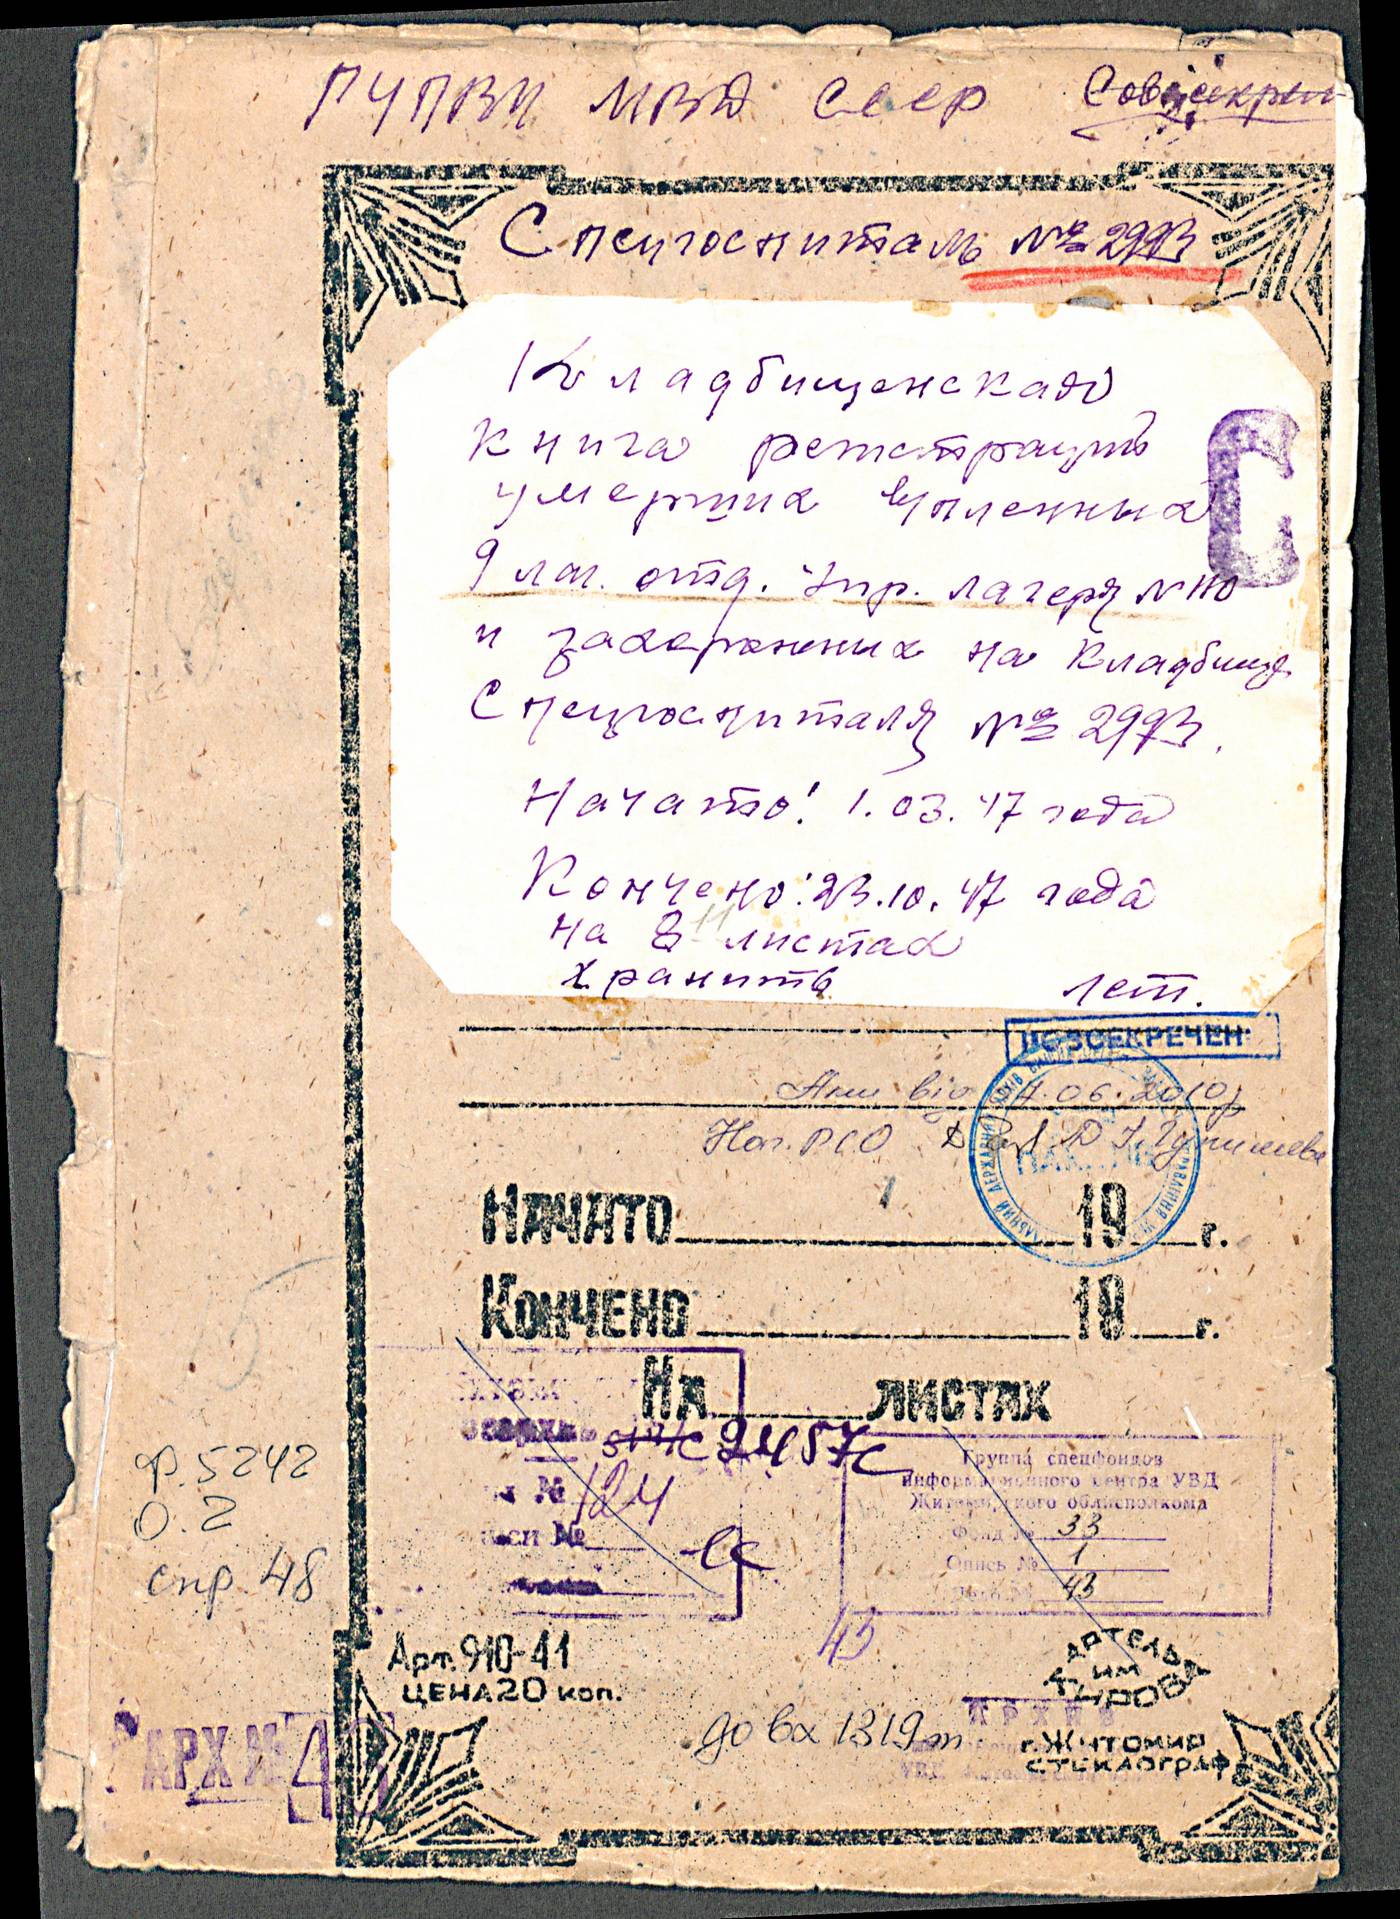 ГУПВИ МВД СССР Сов. секретн
Спецгоспиталь № 2993
Кладбищенская
книга регистраций
умерших в/пленных
9 лаг. отд. Упр. лагеря №110
и захоронених на кладбище
Спецгоспиталя № 2993.
Начато: 1.03.47 года
Кончено: 23.10.47 года
на 8 11 листах
хранить лет.
С
РОЗСЕКРЕЧЕНО
Акт від 06.2010р
Нач. РСО
НАЧАТО 19 г.
КОНЧЕНО 19 г.
НА ЛИСТАХ
2457с
№ 124
си №
Группа спецфондов
информационного центра УВД
Житомирского облисполкома
Фонд № 33
Опись № 1
43
43
ф. 5242
О. 2
спр 48
Арт. 910-41
ЦЕНА 20 коп.
АРТЕЛЬ
ИМ
КИРОВА
г. Житомир
СТЕКЛОГРАФ
АРХИВ
до вх 1319т
АРХ № 43